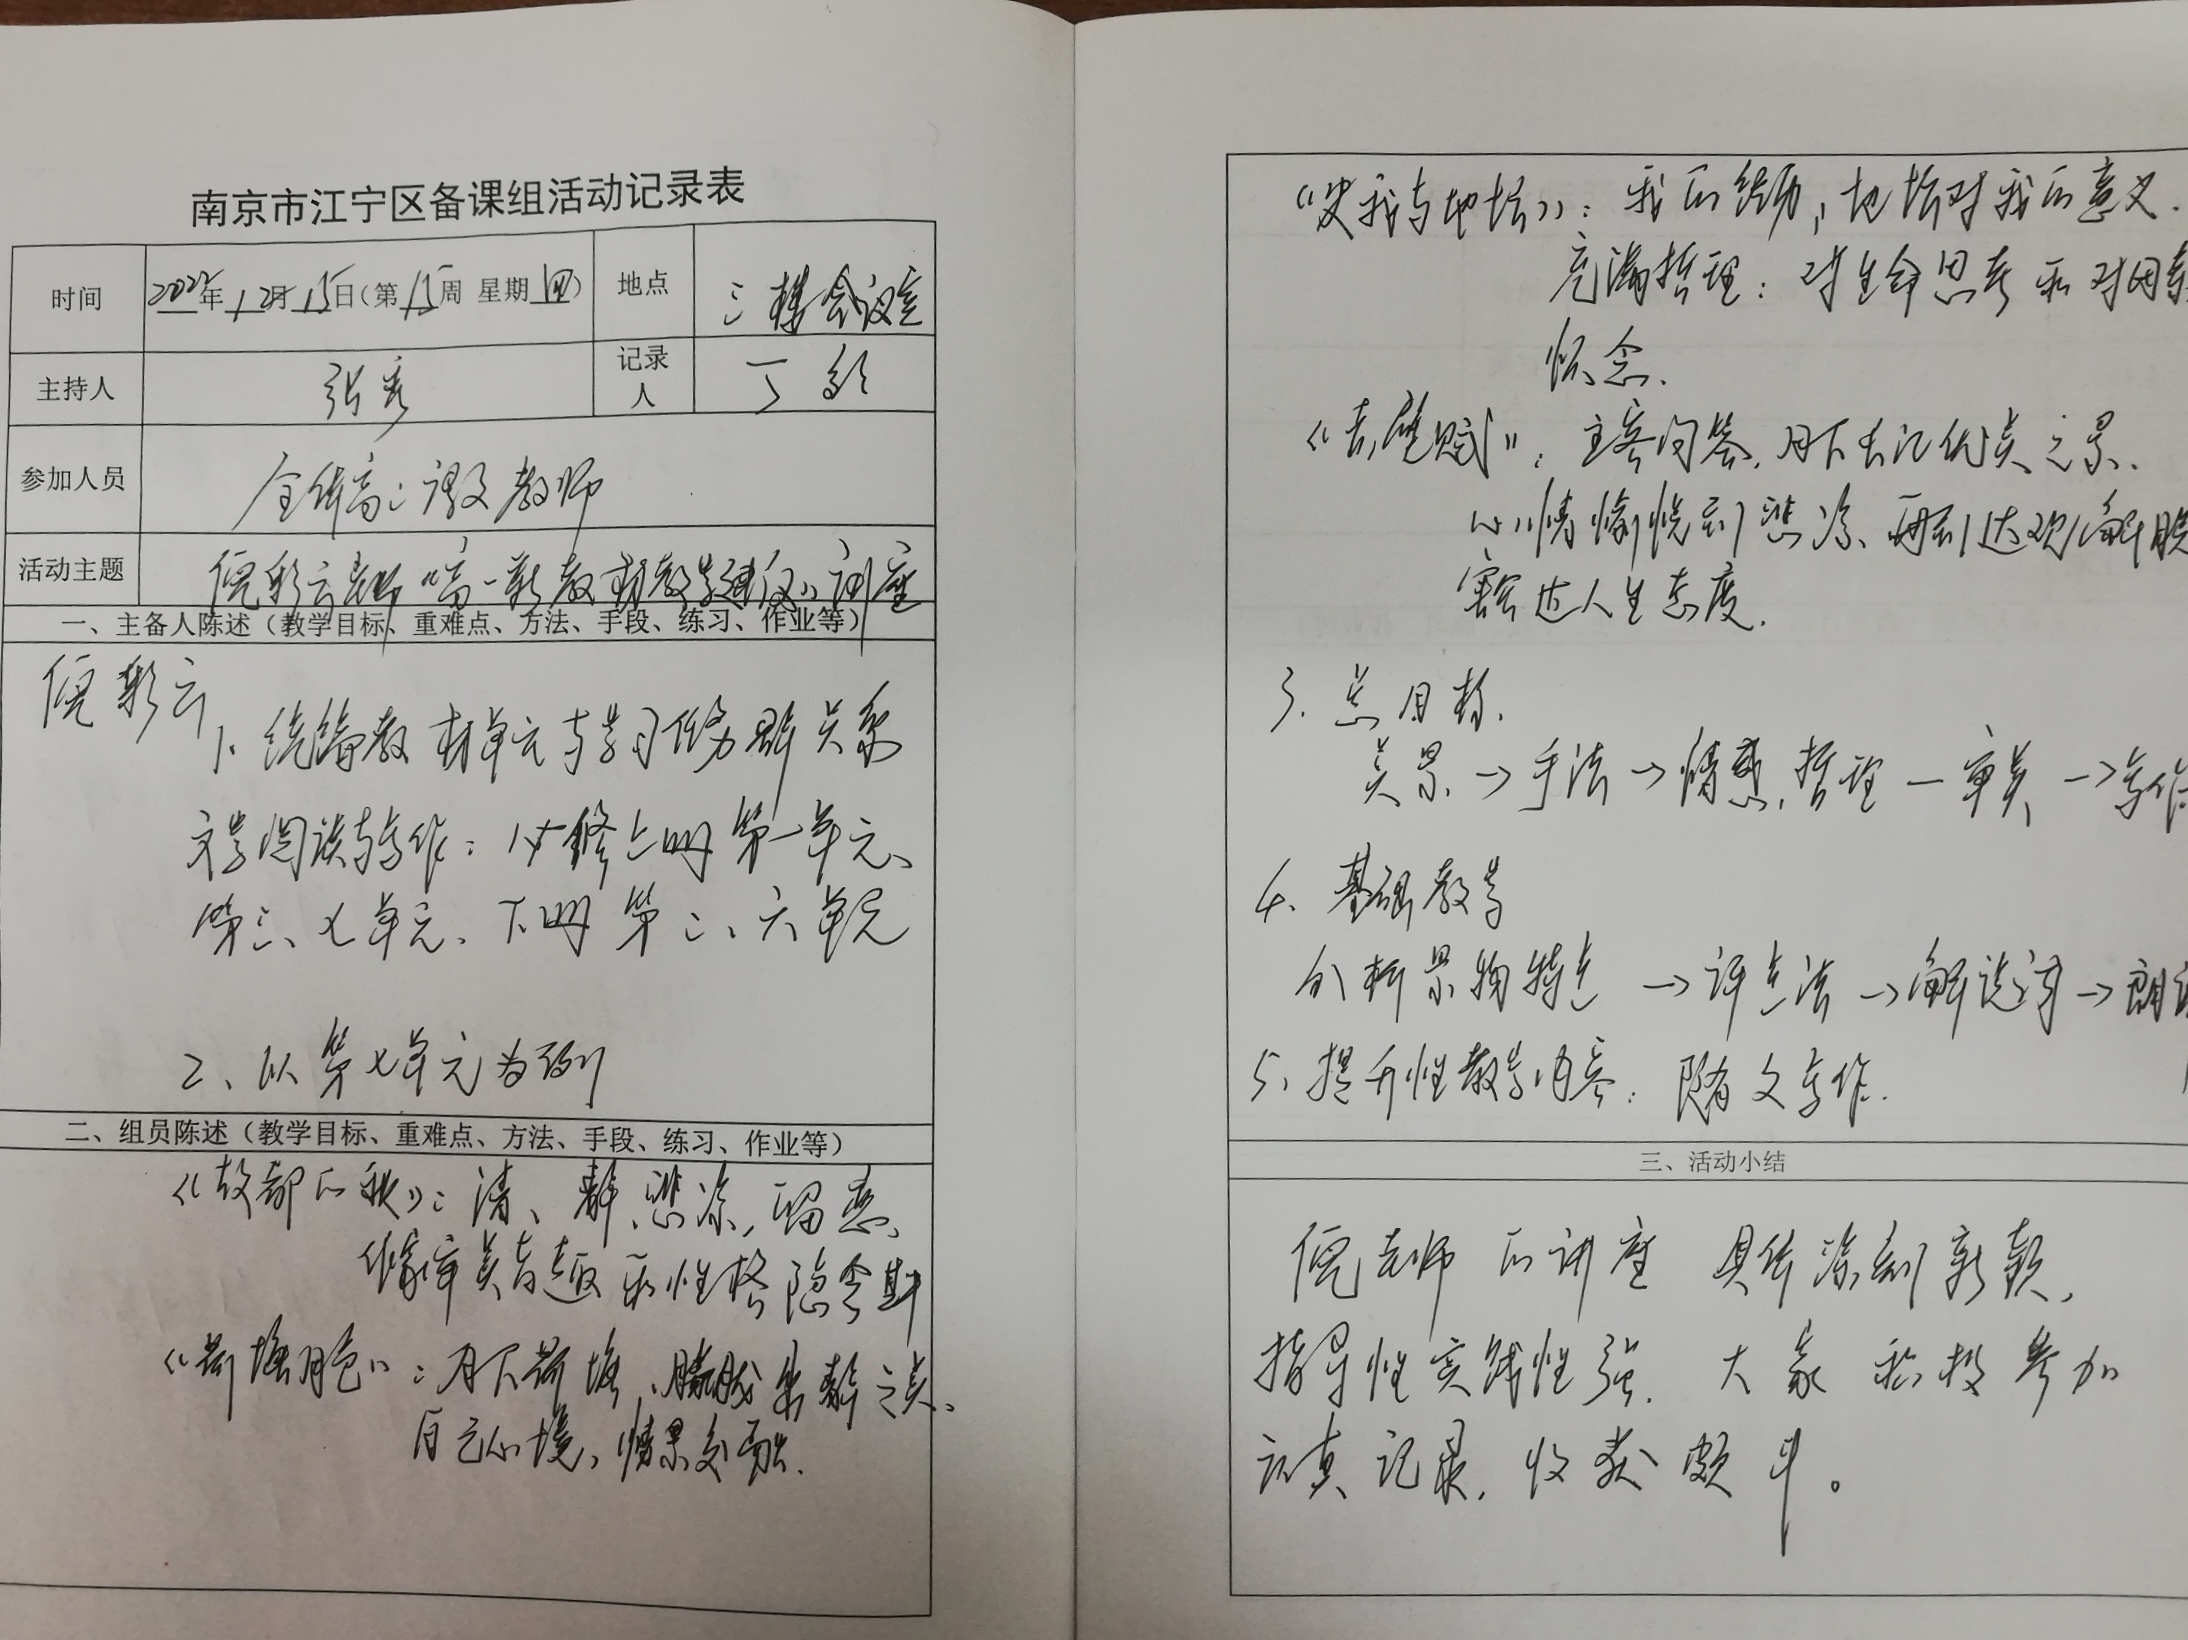 南京市江宁区备课组活动记录表
时间 2022年12月15日(第15周 星期四) 地点 三楼会议室
主持人 张 记录人 丁
参加人员 全体高二语文教师
活动主题 倪彩云老师“高一新教材教学建议”讲座
一、主备人陈述(教学目标、重难点、方法、手段、练习、作业等)
倪彩云
1. 统编教材单元与学习任务群关系
文学阅读与写作:必修上册第一单元、
第三、七单元、下册第二、六单元
2、以第七单元为例
二、组员陈述(教学目标、重难点、方法、手段、练习、作业等)
《故都的秋》:清、静、悲凉,留恋、
作家审美旨趣和性格隐含其中
《荷塘月色》:月下荷塘、朦胧安静之美、
自己心境、情景交融.
《史我与地坛》:我的经历,地坛对我的意义.
充满哲理:对生命思考和对母亲
怀念.
《赤壁赋》:主客问答.月下长江优美之景、
心情愉悦到悲凉、再到达观解脱
豁达人生态度.
3. 总目标.
美景→手法→情感,哲理—审美→写作
4、基础教学
分析景物特点→评点法→解说词→朗读
5、提升性教学内容:随文写作.
三、活动小结
倪老师的讲座 具体深刻新颖,
指导性实践性强.大家积极参加
认真记录,收获颇丰。